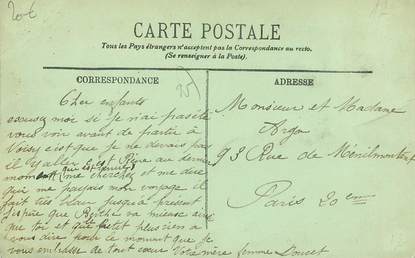 20€
CARTE POSTALE
Tous les Pays étrangers n'acceptent pas la Correspondance au recto.
(Se renseigner à la Poste).
CORRESPONDANCE
Cher enfants
excusez moi si je n'ai pas été
vous voir avant de partir à
c'est que je ne devais pas
y aller c'est au dernier
moment que est venu me chercher et me dire
qui me payais mon voyage il
fait très beau jusqu'à présent
J'espère que Berthe va mieux ainsi
que toi et que plus rien a
vous dire pour ce moment que je
vous embrasse de tout cœur Votre mère femme
ADRESSE
Monsieur et Madame
93 Rue de Ménilmontant
Paris 20 eme